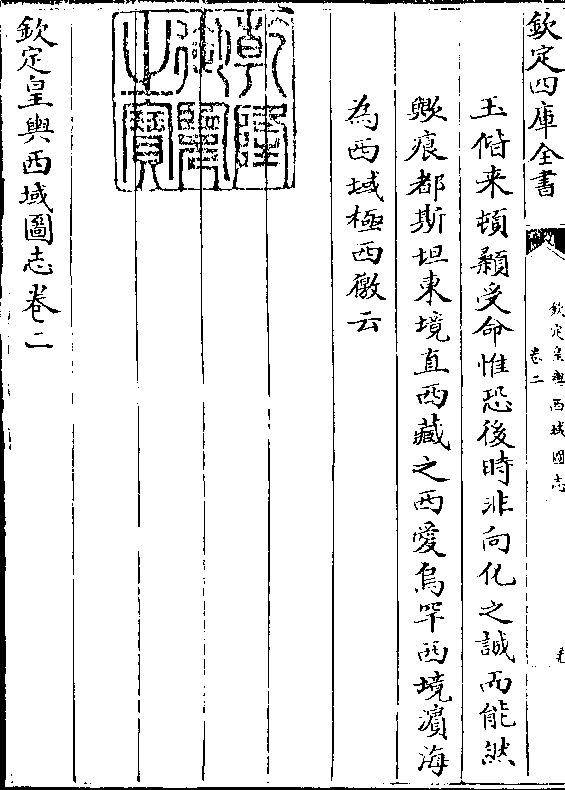 欽定四庫全書
欽定皇輿西域圖志
卷二
玉偕来頓顙受命惟恐後時非向化之誠而能然
歟痕都斯坦東境直西藏之西愛烏罕西境濵海
為西域極西徼云
乾隆御覽之寶
欽定皇輿西域圖志卷二